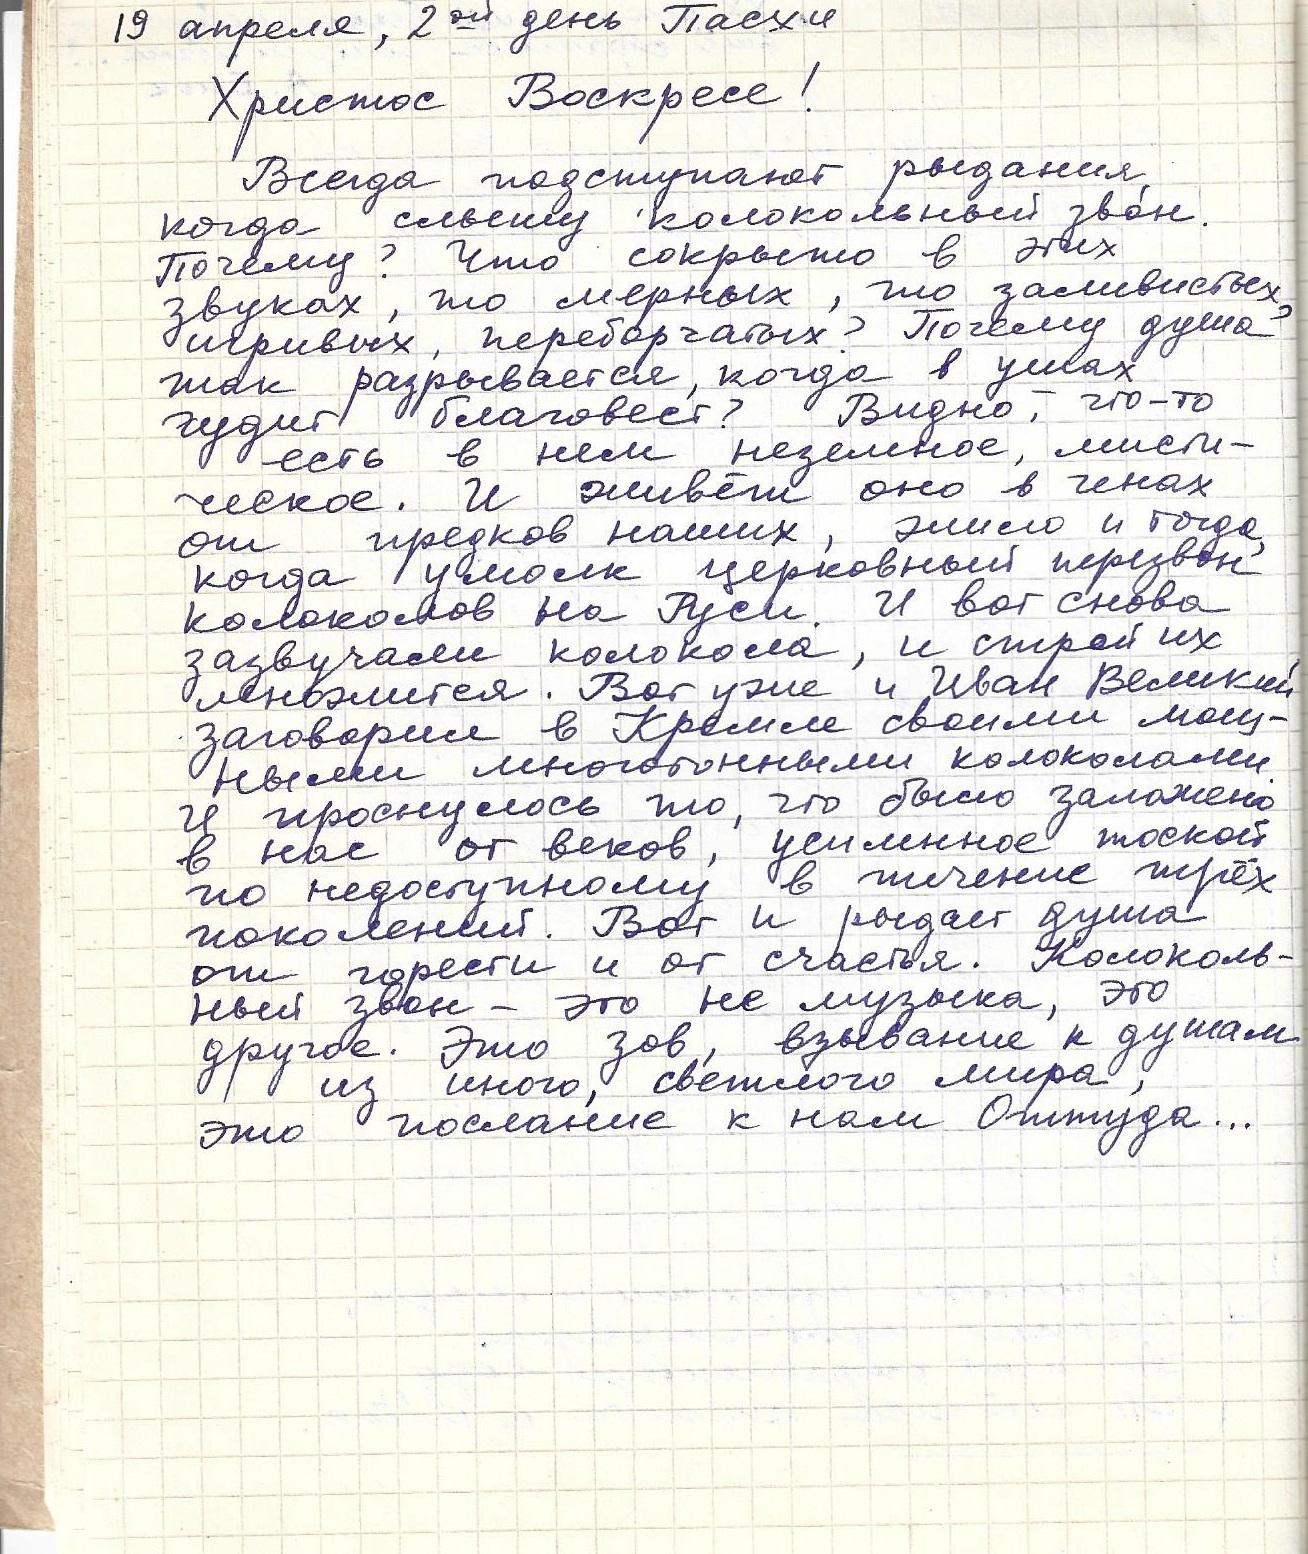 19 апреля, 2ой день Пасхи
Христос Воскресе!
Всегда подступают рыдания,
когда слышу колокольный звон.
Почему? Что сокрыто в этих
звуках, то мерных, то заливистых,
игривых, переборчатых? Почему душа
так разрывается, когда в ушах
гудит благовест? Видно, что-то
есть в нем неземное, мисти-
ческое. И живёт оно в генах
от предков наших, жило и тогда,
когда умолк церковный перезвон
колоколов на Руси. И вот снова
зазвучали колокола, и строй их
множится. Вот уже и Иван Великий
заговорил в Кремле своими мощ-
ными многотонными колоколами.
И проснулось то, что было заложено
в нас от веков, усиленное тоской
по недоступному в течение трёх
поколений. Вот и рыдает душа
от горести и от счастья. Колоколь-
ный звон – это не музыка, это
другое. Это зов, взывание к душам
из иного, светлого мира,
это послание к нам Оттуда...